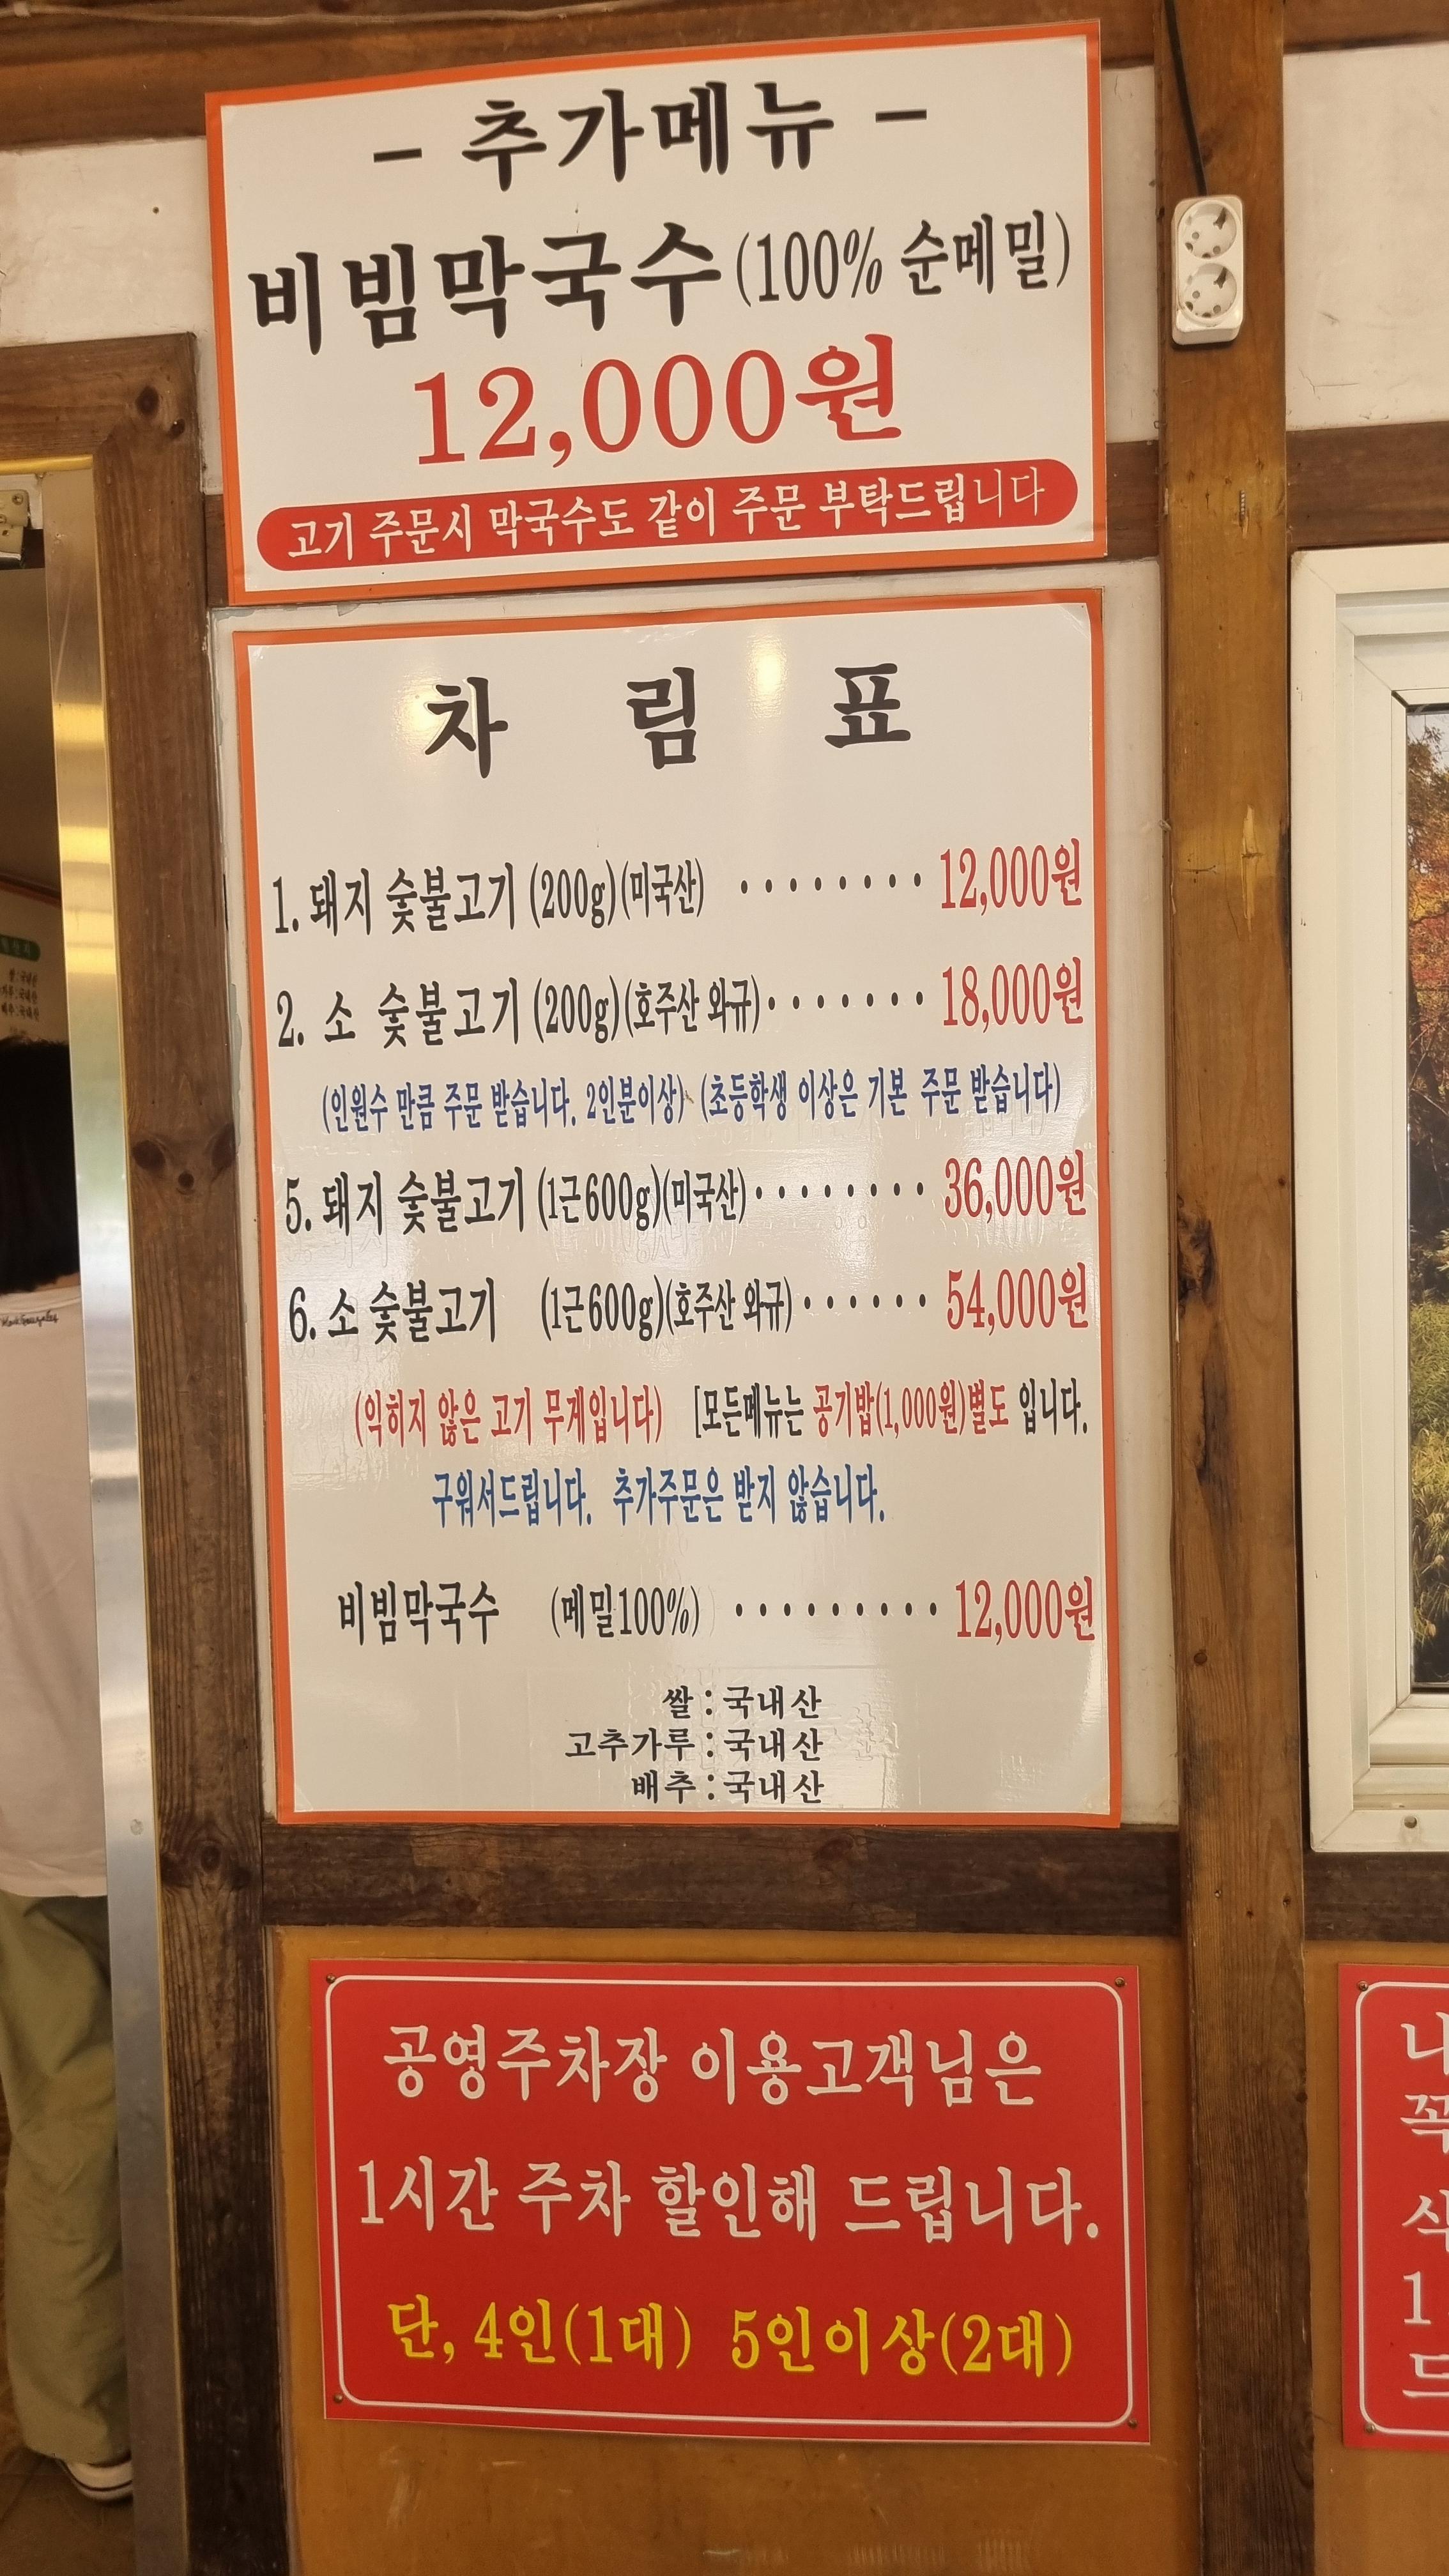 - 추가메뉴 -
비빔막국수(100% 순메밀)
12,000원
고기 주문시 막국수도 같이 주문 부탁드립니다
차 림 표
1. 돼지 숯불고기 (200g)(미국산) ········ 12,000원
2. 소 숯불고기 (200g)(호주산 와규)······· 18,000원
(인원수 만큼 주문 받습니다. 2인분이상) (초등학생 이상은 기본 주문 받습니다)
5. 돼지 숯불고기 (1근600g)(미국산)········ 36,000원
6. 소 숯불고기 (1근600g)(호주산 와규)······ 54,000원
(익히지 않은 고기 무게입니다) [모든메뉴는 공기밥(1,000원)별도 입니다.
구워서드립니다. 추가주문은 받지 않습니다.
비빔막국수 (메밀100%) ········· 12,000원
쌀 : 국내산
고추가루 : 국내산
배추 : 국내산
공영주차장 이용고객님은
1시간 주차 할인해 드립니다.
단, 4인(1대) 5인이상(2대)